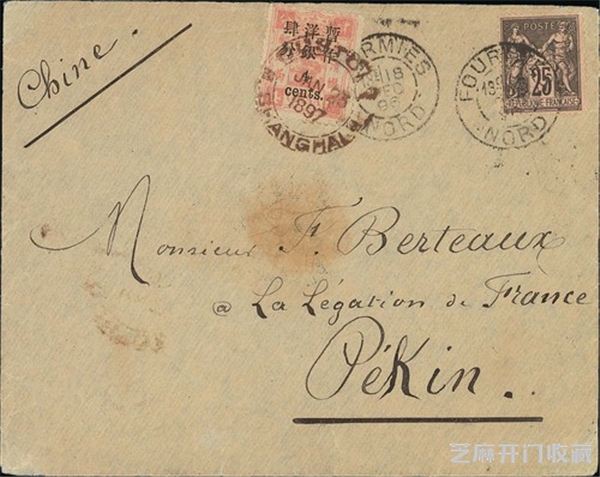 Chine.
暫 洋 肆
作 銀 分
4
cents.
SHANGHAI
1897
FOURMIES
18
DEC
96
NORD
POSTE
25
REPUBLIQUE FRANÇAISE
NORD
Monsieur F. Berteaux
@ La Légation de France
Pékin.
芝麻开门收藏